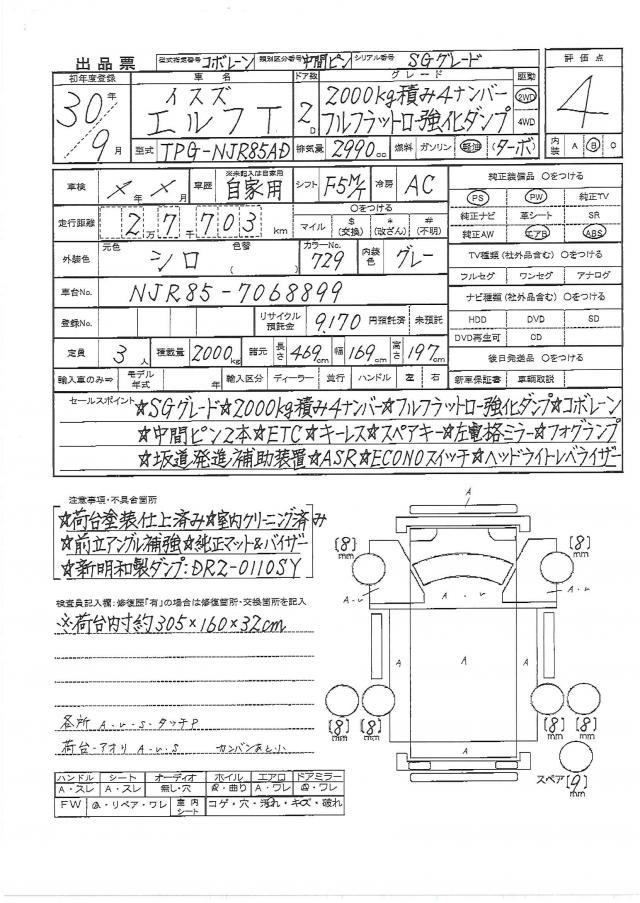 出品票 型式指定番号 コボレーン 類別区分番号 中間ピン シリアル番号 SGグレード
初年度登録 車名 ドア数 グレード 駆動 評価点
30年 イスズ 2D 2000kg積み4ナンバー 2WD 4
9月 エルフT フルフラットロー強化ダンプ 4WD
型式 TPG-NJR85AD 排気量 2990cc 燃料 ガソリン 軽油 (ターボ) 内装 A B C
車検 ×年×月 車歴 ※未記入は自家用 自家用 シフト F5M/T 冷房 AC 純正装備品 ○をつける
PS PW 純正TV
走行距離 2万7千703km ○をつける マイル $(交換) *(改ざん) #(不明) 純正ナビ 革シート SR
純正AW エアB ABS
外装色 元色 シロ 色替( ) カラーNo. 729 内装色 グレー TV種類(社外品含む) ○をつける
フルセグ ワンセグ アナログ
車台No. NJR85-7068899 ナビ種類(社外品含む) ○をつける
登録No. リサイクル預託金 9,170 円預託済 未預託 HDD DVD SD
DVD再生可 CD
定員 3人 積載量 2000kg 諸元 長さ 469cm 幅 169cm 高さ 197cm 後日発送品 ○をつける
輸入車のみ⇒ モデル年式 年 輸入区分 ディーラー 並行 ハンドル 左 右 新車保証書 車輌取説
セールスポイント ☆SGグレード☆2000kg積み4ナンバー☆フルフラットロー強化ダンプ☆コボレーン
☆中間ピン2本☆ETC☆キーレス☆スペアキー☆左電格ミラー☆フォグランプ
☆坂道発進補助装置☆ASR☆ECONOスイッチ☆ヘッドライトレベライザー
注意事項・不具合箇所
☆荷台塗装仕上済み☆室内クリーニング済み
☆前立アングル補強☆純正マット&バイザー
☆新明和製ダンプ:DR2-0110SY
検査員記入欄:修復歴「有」の場合は修復箇所・交換箇所を記入
※荷台内寸約305×160×32cm
各所 A・U・S・タッチP
荷台・アオリ A・U・S カンバンあと小
[8]mm
[8]mm
A・U
A・U
A・U
A
A
A
[8]mm [8]mm [8]mm [8]mm
A
スペア [9]mm
ハンドル シート オーディオ ホイル エアロ ドアミラー
A・スレ A・スレ 無し・穴 A・曲り A・ワレ A・ワレ
FW A・リペア・ワレ 室内シート コゲ・穴・汚れ・キズ・破れ